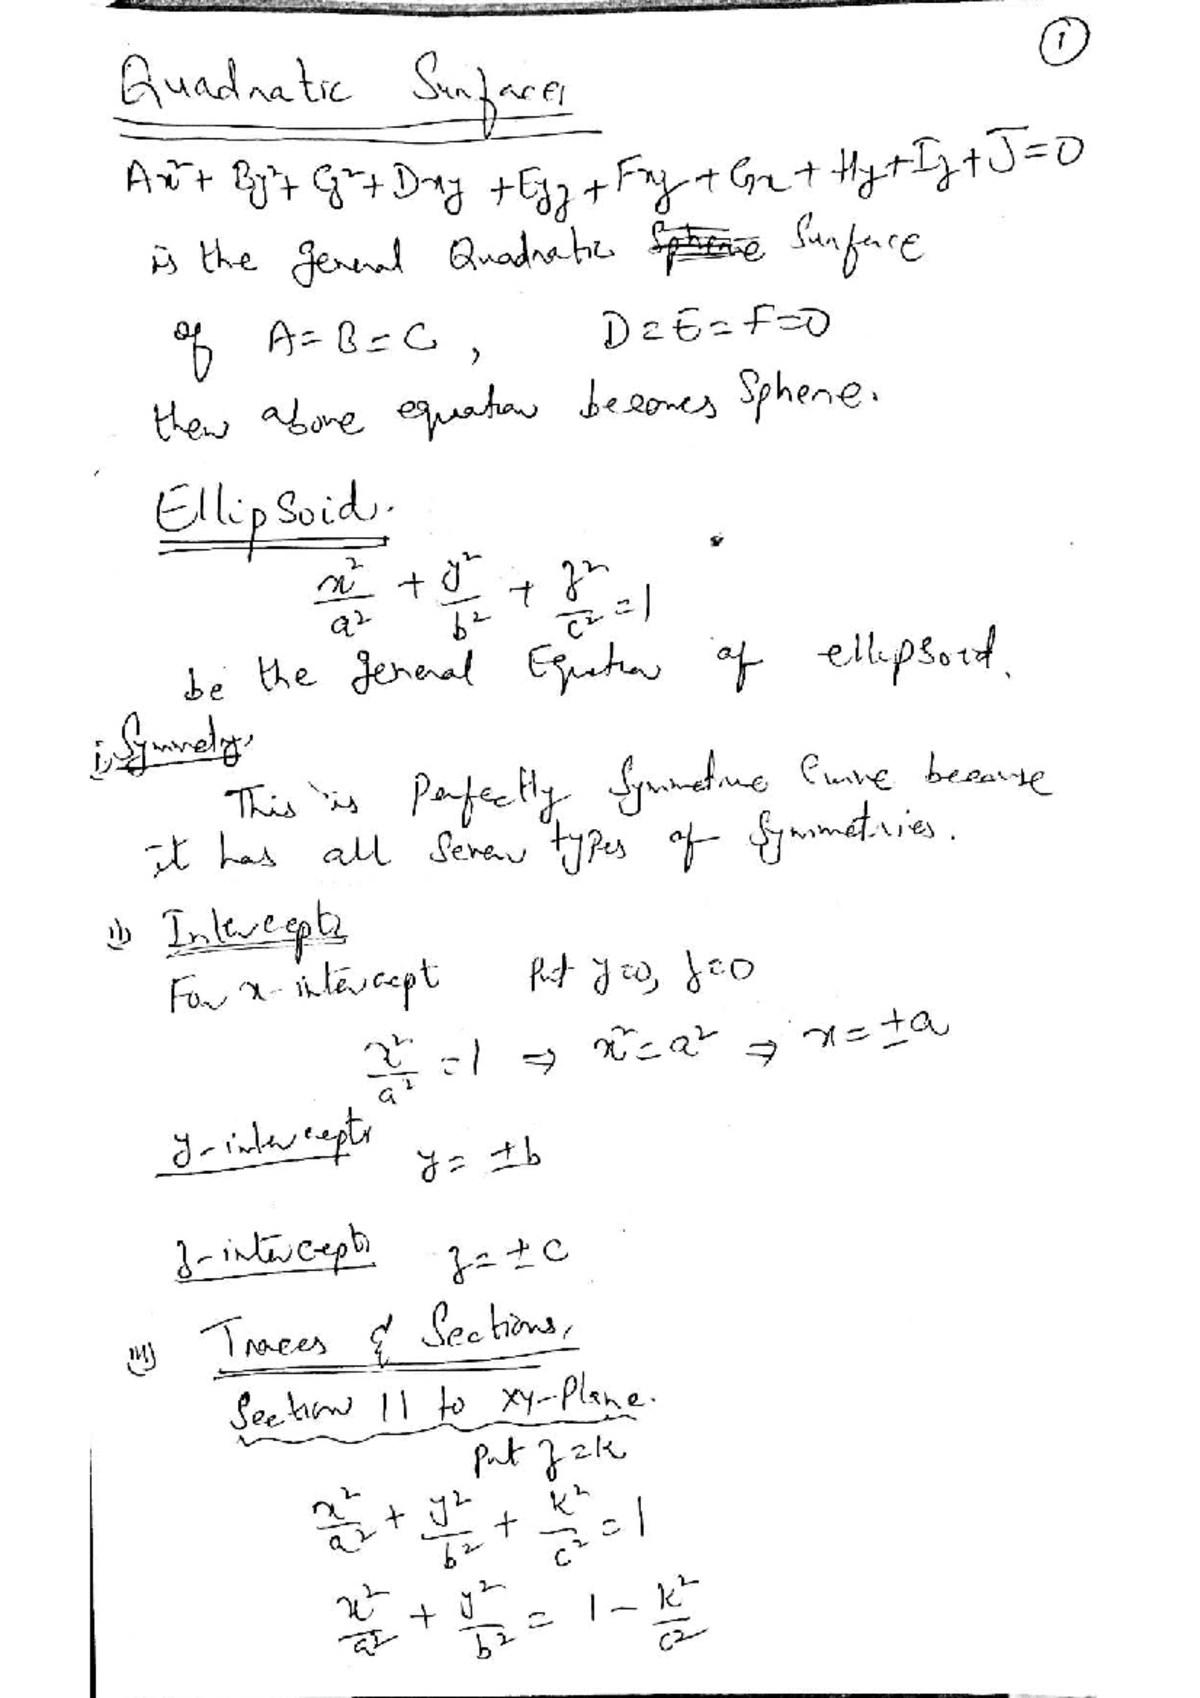 1
Quadratic Surfaces
Ax² + By² + Cz² + Dxy + Eyz + Fxz + Gx + Hy + Iz + J = 0
is the general Quadratic Sphere Surface
if A = B = C, D = E = F = 0
then above equation becomes Sphere.
Ellipsoid.
x²/a² + y²/b² + z²/c² = 1
be the general Equation of ellipsoid.
i) Symmetry.
This is Perfectly Symmetric Curve because
it has all Seven types of Symmetries.
ii) Intercepts
For x-intercept Put y=0, z=0
x²/a² = 1 ⇒ x² = a² ⇒ x = ±a
y-intercepts y = ±b
z-intercepts z = ±c
iii) Traces & Sections,
Section || to xy-Plane.
Put z = k
x²/a² + y²/b² + k²/c² = 1
x²/a² + y²/b² = 1 - k²/c²